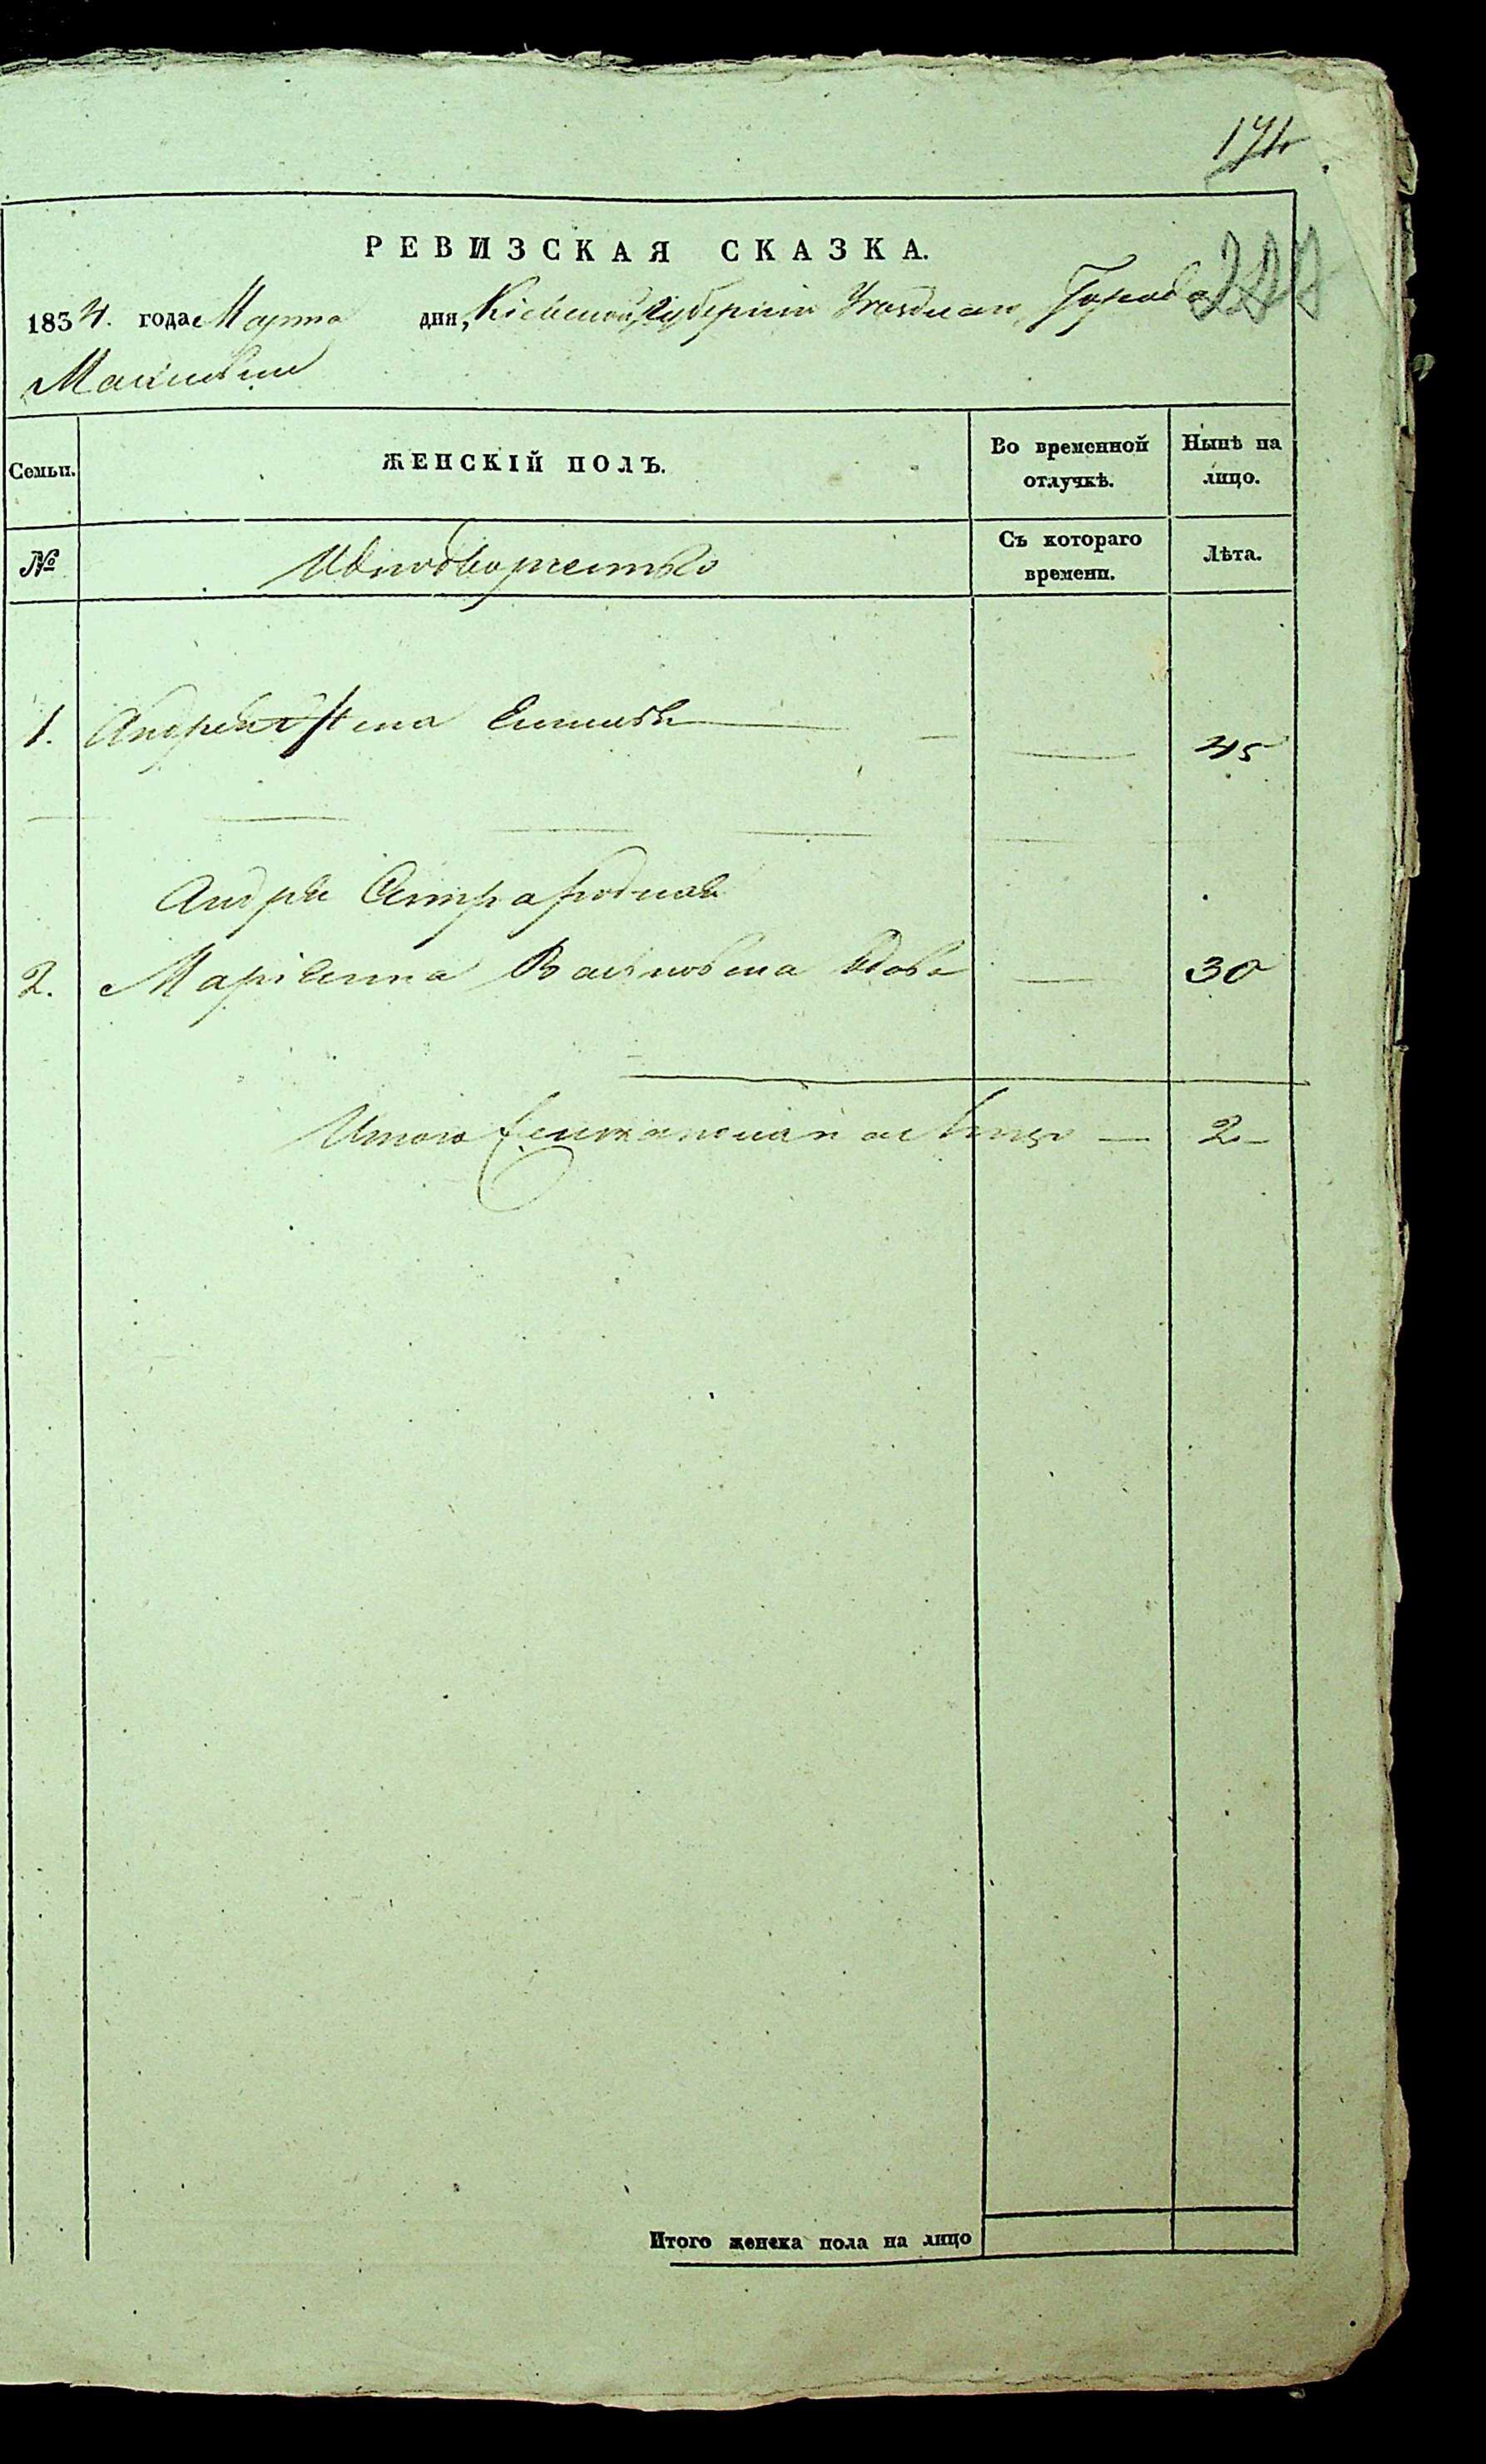 РЕВИЗСКАЯ СКАЗКА.
1834. года Марта дня, Кіевской Губерніи Города
Семьи.
ЖЕНСКІЙ ПОЛЪ.
Во временной
отлучкѣ.
Нынѣ на
лицо.
№
Съ котораго
времени.
Лѣта.
1. Андрея жена 45
Андрея Сестра родная
2. Маріанна вдова 30
Итого женска пола на лицо — 2
Итого женска пола на лицо